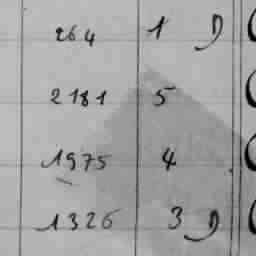 264 1 D
2181 5
1975 4
1326 3 D